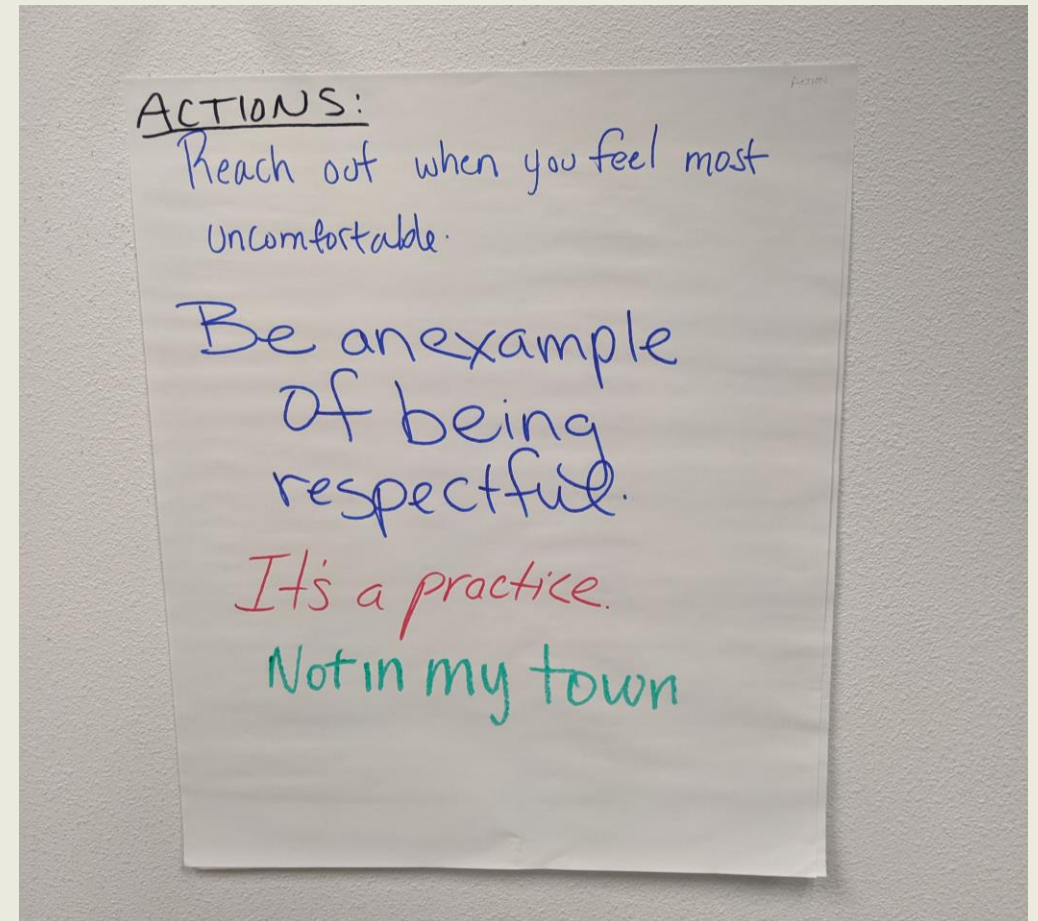 ACTION
ACTIONS:
Reach out when you feel most
uncomfortable.
Be an example
of being
respectful.
It's a practice.
Not in my town